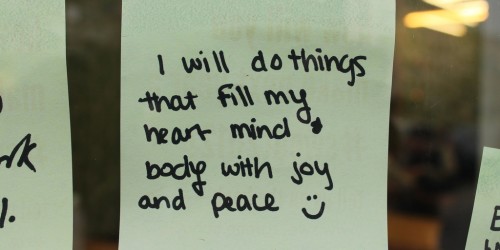 I will do things
that fill my
heart mind &
body with joy
and peace :)